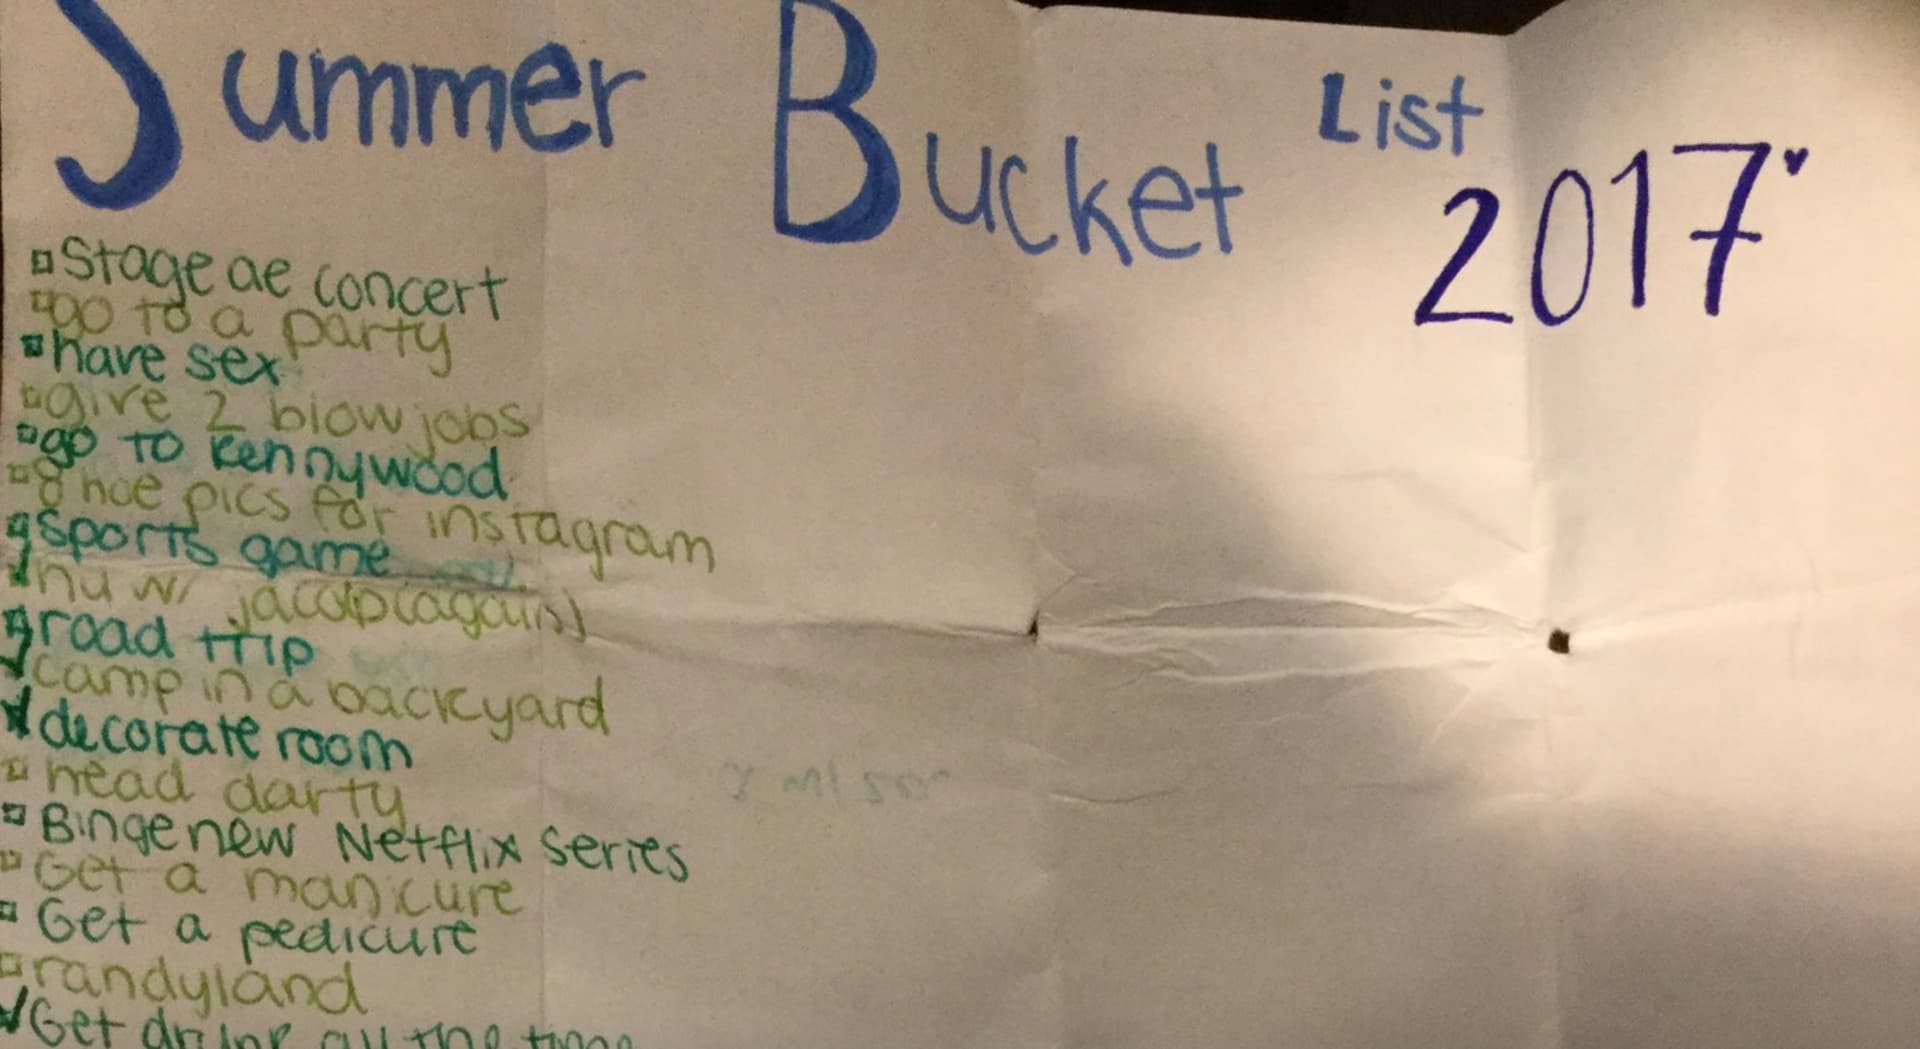 Summer Bucket List
2017
Stage ae concert
go to a party
have sex
give 2 blow jobs
go to kennywood
8 hoe pics for instagram
sports game
hu w/ jacob(again)
road trip
camp in a backyard
decorate room
head darty
Binge new Netflix series
Get a manicure
Get a pedicure
randyland
Get drunk all the time